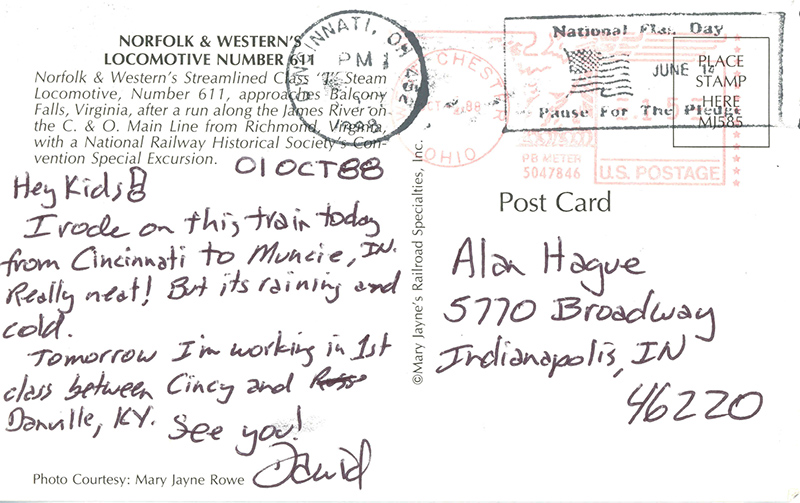 NORFOLK & WESTERN'S
LOCOMOTIVE NUMBER 611
Norfolk & Western's Streamlined Class "J" Steam
Locomotive, Number 611, approaches Balcony
Falls, Virginia, after a run along the James River on
the C. & O. Main Line from Richmond, Virginia,
with a National Railway Historical Society's Con-
vention Special Excursion.
01 OCT 88
Hey Kids!
I rode on this train today
from Cincinnati to Muncie, IN.
Really neat! But its raining and
cold.
Tomorrow I'm working in 1st
class between Cincy and
Danville, KY. See you!
David
Photo Courtesy: Mary Jayne Rowe
©Mary Jayne's Railroad Specialties, Inc.
CINCINNATI, OH 452
PM
OHIO
PB METER
5047846
U.S. POSTAGE
National Flag Day
JUNE 14
Pause For The Pledge
PLACE
STAMP
HERE
MJ585
Post Card
Alan Hague
5770 Broadway
Indianapolis, IN
46220